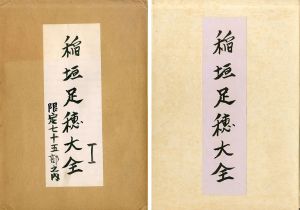 稲垣足穂大全
I
限定七十五部之内
稲垣足穂大全